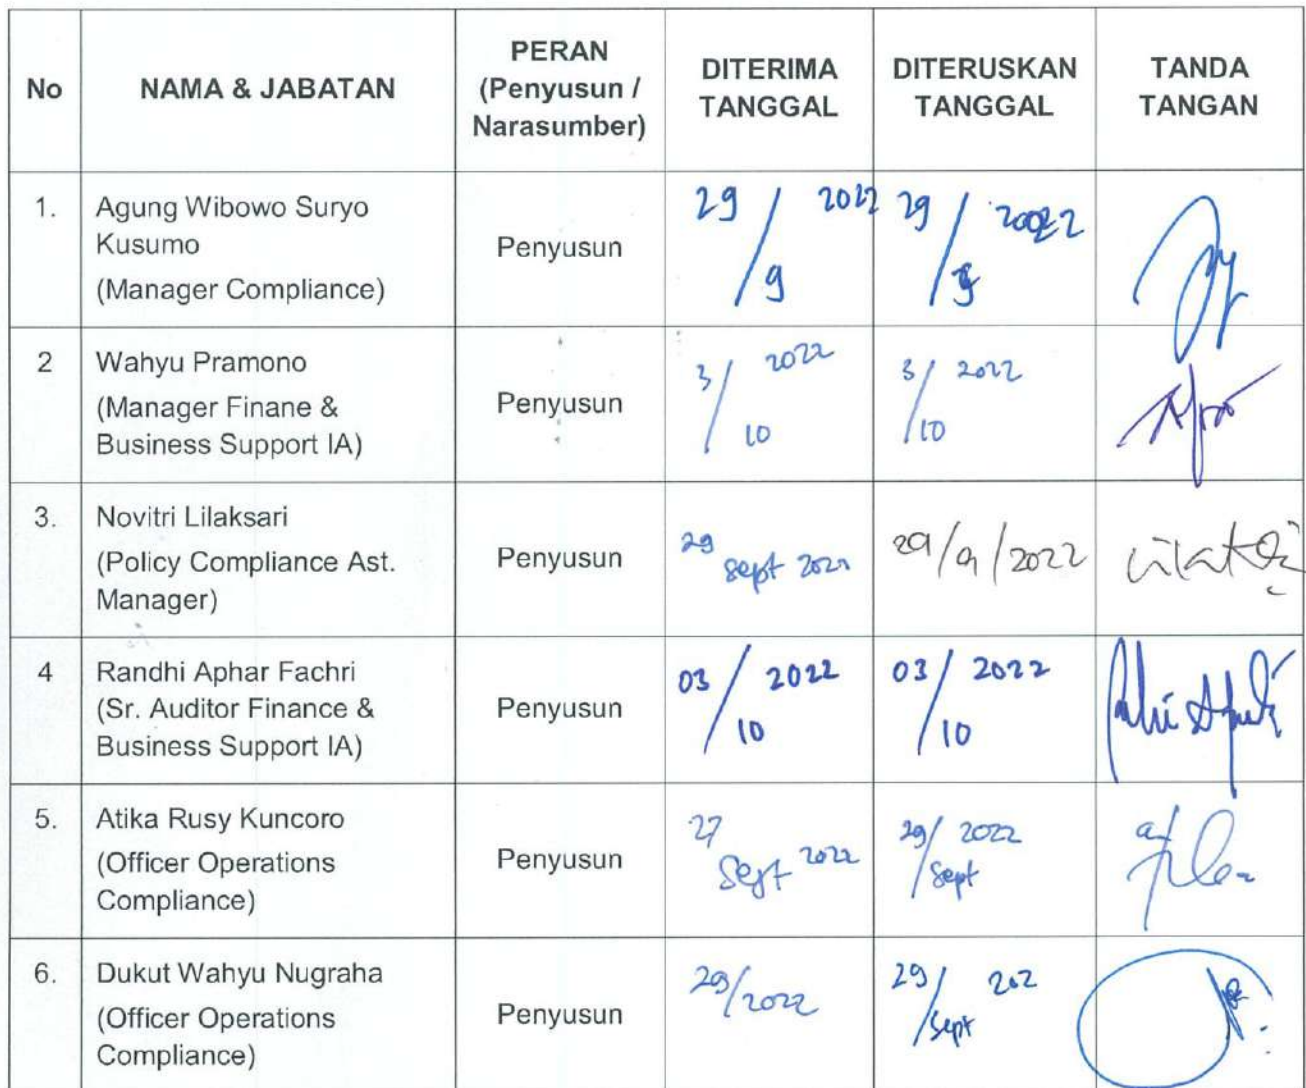 No
NAMA & JABATAN
PERAN
(Penyusun /
Narasumber)
DITERIMA
TANGGAL
DITERUSKAN
TANGGAL
TANDA
TANGAN
1.
Agung Wibowo Suryo
Kusumo
(Manager Compliance)
Penyusun
29 / 9 2022
29 / 9 2022
2
Wahyu Pramono
(Manager Finane &
Business Support IA)
Penyusun
3 / 10 2022
3 / 10 2022
3.
Novitri Lilaksari
(Policy Compliance Ast.
Manager)
Penyusun
29
Sept 2022
29/9/2022
4
Randhi Aphar Fachri
(Sr. Auditor Finance &
Business Support IA)
Penyusun
03 / 10 2022
03 / 10 2022
5.
Atika Rusy Kuncoro
(Officer Operations
Compliance)
Penyusun
27
Sept 2022
29/ Sept 2022
6.
Dukut Wahyu Nugraha
(Officer Operations
Compliance)
Penyusun
29/2022
29/ Sept 202